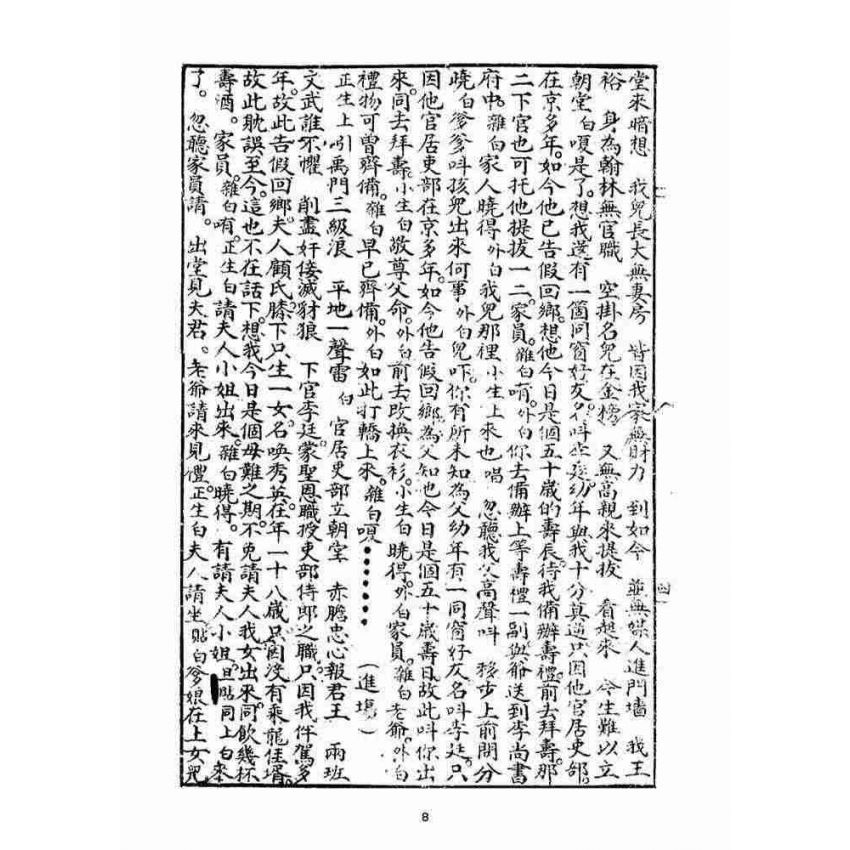 堂來暗想　我兒長大無妻房　皆因我家無財力　到如今　並無媒人進門墻　我王
裕　身為翰林無官職　空掛名兒在金榜　又無高親來提拔　看起來　今生難以立
朝堂　白嗄是了。想我還有一箇同窗好友。名叫李廷幼年與我十分莫逆只因他官居吏部。
在京多年。如今他已告假回鄉。想他今日是個五十歲的壽辰。待我備辦壽禮。前去拜壽。那
二下官也可托他提拔一二。家員。雜白唷。外白你去備辦上等壽禮一副與爺送到李尚書
府中。雜白家人曉得外白我兒那裡小生上來也唱　忽聽我父高聲叫　移步上前問分
曉白爹爹叫孩兒出來何事外白兒吓。你有所未知為父幼年有一同窗好友名叫李廷。只
因他官居吏部在京多年。如今他告假回鄉為父知他今日是個五十歲壽日。故此叫你出
來。同去拜壽。小生白敬尊父命。外白前去改換衣衫。小生白曉得。外白家員。雜白老爺。外白
禮物可曾齊備。雜白早已齊備。外白如此打轎上來。雜白嗄••••••　（進場）
正生上引禹門三級浪　平地一聲雷　白　官居吏部立朝堂　赤膽忠心報君王　兩班
文武誰不懼　削盡奸佞滅豺狼　下官李廷。蒙聖恩職授吏部侍郎之職。只因我伴駕多
年。故此告假回鄉。夫人顧氏。膝下只生一女。名喚秀英。在年一十八歲。只因沒有乘龍佳壻。
故此耽誤至今。這也不在話下。想我今日是個母難之期。不免請夫人我女出來。同飲幾杯
壽酒。家員。雜白唷。正生白請夫人小姐出來。雜白曉得。有請夫人小姐。旦貼同上白來
了。忽聽家員請。出堂見夫君。老爺請來見禮。正生白夫人請坐貼白爹娘在上女兒
8